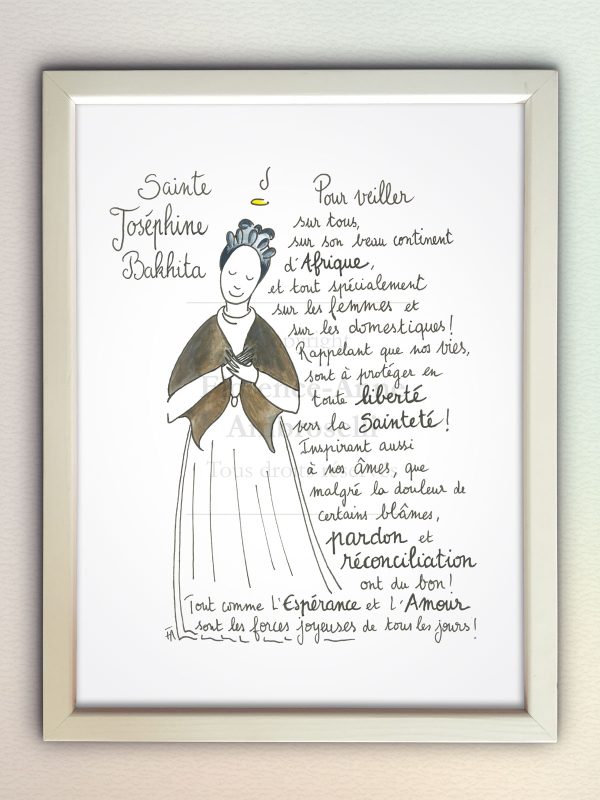 Sainte
Joséphine
Bakhita
Pour veiller
sur tous,
sur son beau continent
d'Afrique,
et tout spécialement
sur les femmes et
sur les domestiques !
Rappelant que nos vies,
sont à protéger en
toute liberté
vers la Sainteté !
Inspirant aussi
à nos âmes, que
malgré la douleur de
certains blâmes,
pardon et
réconciliation
ont du bon !
Tout comme l'Espérance et l'Amour
sont les forces joyeuses de tous les jours !
Copyright
Florence-Anne
Ambroselli
Tous droits réservés